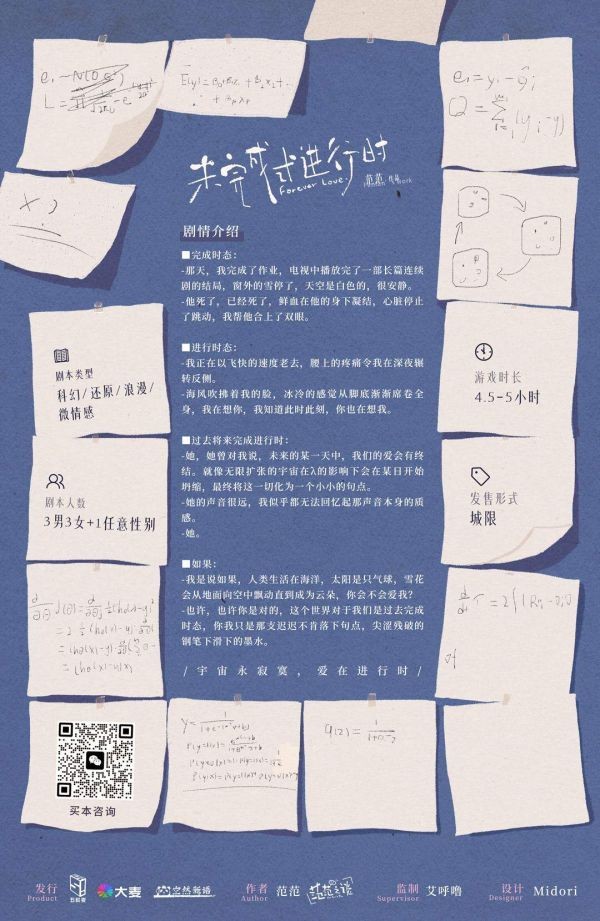 E(y)=β0+β1x1+β2x2+...
+βpxp
未完成式进行时
Forever Love.
范范 作品
x?
剧情介绍
■完成时态:
-那天，我完成了作业，电视中播放完了一部长篇连续
剧的结局，窗外的雪停了，天空是白色的，很安静。
-他死了，已经死了，鲜血在他的身下凝结，心脏停止
了跳动，我帮他合上了双眼。
■进行时态:
-我正在以飞快的速度老去，腰上的疼痛令我在深夜辗
转反侧。
-海风吹拂着我的脸，冰冷的感觉从脚底渐渐席卷全
身，我在想你，我知道此时此刻，你也在想我。
■过去将来完成进行时:
-她，她曾对我说，未来的某一天中，我们的爱会有终
结。就像无限扩张的宇宙在λ的影响下会在某日开始
坍缩，最终将这一切化为一个小小的句点。
-她的声音很远，我似乎都无法回忆起那声音本身的质
感。
-她。
■如果:
-我是说如果，人类生活在海洋，太阳是只气球，雪花
会从地面向空中飘动直到成为云朵，你会不会爱我?
-也许，也许你是对的，这个世界对于我们是过去完成
时态，你我只是那支迟迟不肯落下句点，尖涩残破的
钢笔下滑下的墨水。
/ 宇宙永寂寞，爱在进行时 /
剧本类型
科幻/还原/浪漫/
微情感
剧本人数
3男3女+1任意性别
游戏时长
4.5-5小时
发售形式
城限
买本咨询
发行
Product
大麦
作者
Author
范范
监制
Supervisor
艾呼噜
设计
Designer
Midori